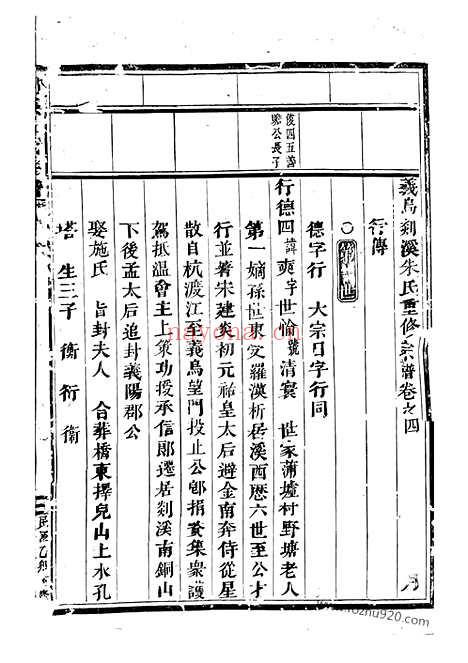 義烏剡溪朱氏重修宗譜卷之四
行傳
德字行 大宗日字行同
俊四五善
瞻公長子
行德四諱奭字世瑜號清寰 世家蒲墟村野塘老人
第一嫡孫世東交羅漢析居溪西歷六世至公才
行並著宋建炎初元祐皇太后避金南奔侍從星
散自杭渡江至義烏望門投止公卽捐貲集衆護
駕抵溫會主上策功授承信郞遷居剡溪南銅山
下後孟太后追封義陽郡公
娶施氏 旨封夫人 合葬橋東擇兒山上水孔
塔 生三子 衡 衍 衛
nayona.cn
www.fozhu920.com